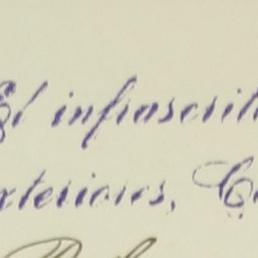 El infrascrit
xteriores, C